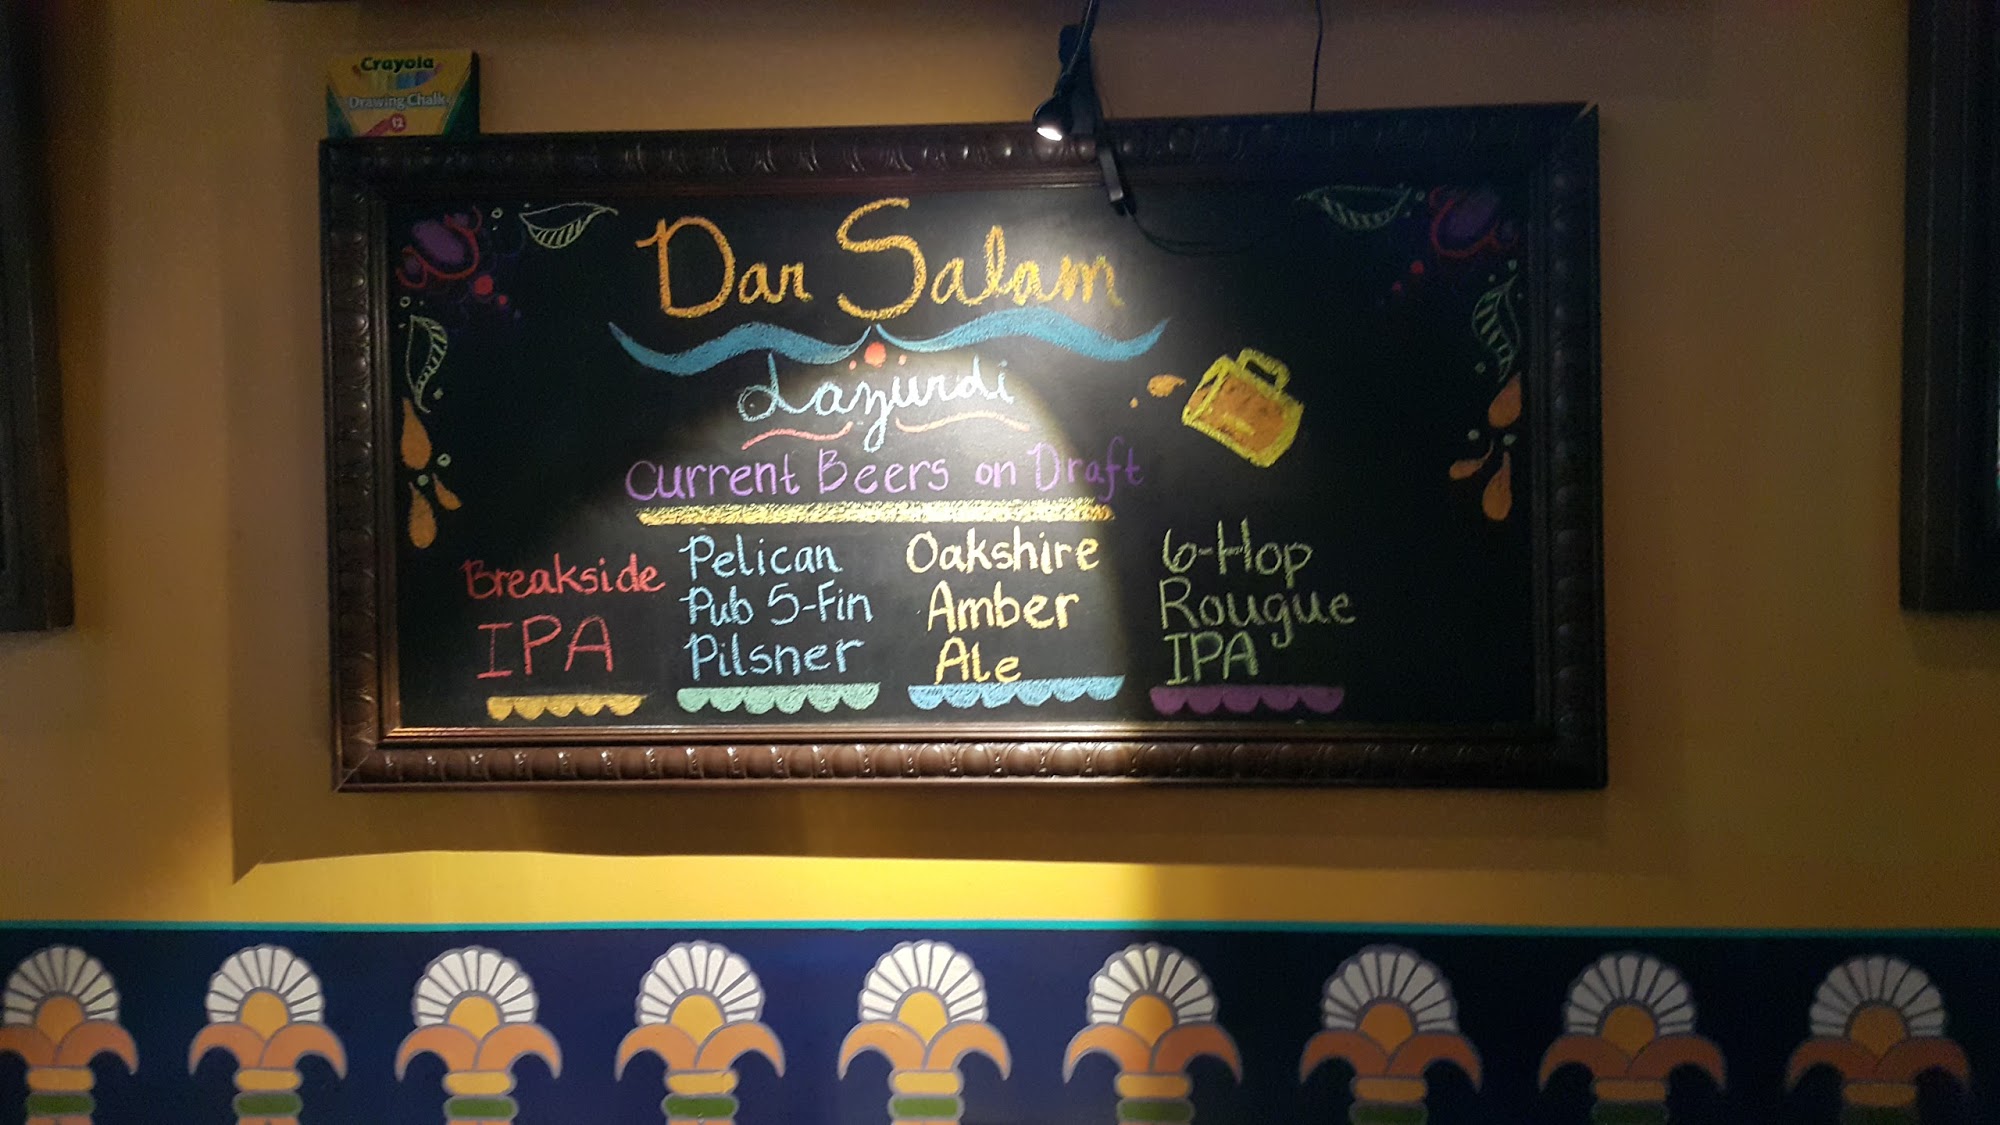 Crayola
Drawing Chalk
12
Dar Salam
Lazurdi
Current Beers on Draft
Breakside
IPA
Pelican
Pub 5-Fin
Pilsner
Oakshire
Amber
Ale
6-Hop
Rougue
IPA